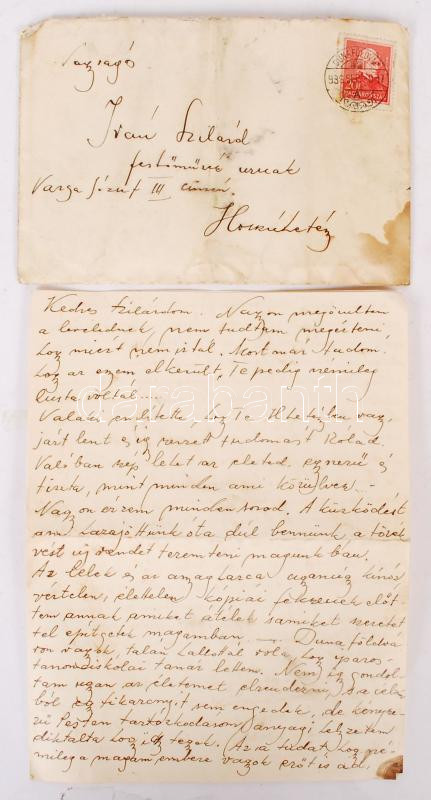 Iván Szilárd
festőművész urnak
Varga József III címén.
DUNAFÖLDVÁR
MAGYARORSZÁG
darabanth
Kedves Szilárdom. Nagyon megörültem
a levelednek, nem tudtam megérteni
hogy miért nem írtál. Most már tudom,
hogy az enyém elkerült, Te pedig némileg
lusta voltál.....
Valaki említette, hogy Te
járt lent és így szerzett tudomást Rólad.
Valóban szép lehet az életed, egyszerű és
tiszta, mint minden ami közvetlen. -
Nagyon érzem minden sorod. A küzködést
ami hazajöttünk óta dúl bennünk, a törek
vést új rendet teremteni magunkban.
Az lélek és az anyag harca ugyanúgy kínos
vértelen, élettelen kópiái fekszenek előt-
tem annak amiket átélek s amiket szeretet
tel építgetek magamban. — Dunaföldvá
ron vagyok, talán hallottál róla, hogy iparos-
tanonciskolai tanár lettem. Nem így gondol-
tam ugyan az életemet elrendezni, s a célom
ból egy fikarcnyit sem engedek, de kénysze-
rű Pesten tartózkodásom anyagi helyzetem
diktálta hogy így tegyek. Az a tudat, hogy né-
mileg a magam embere vagyok erőt is ad,